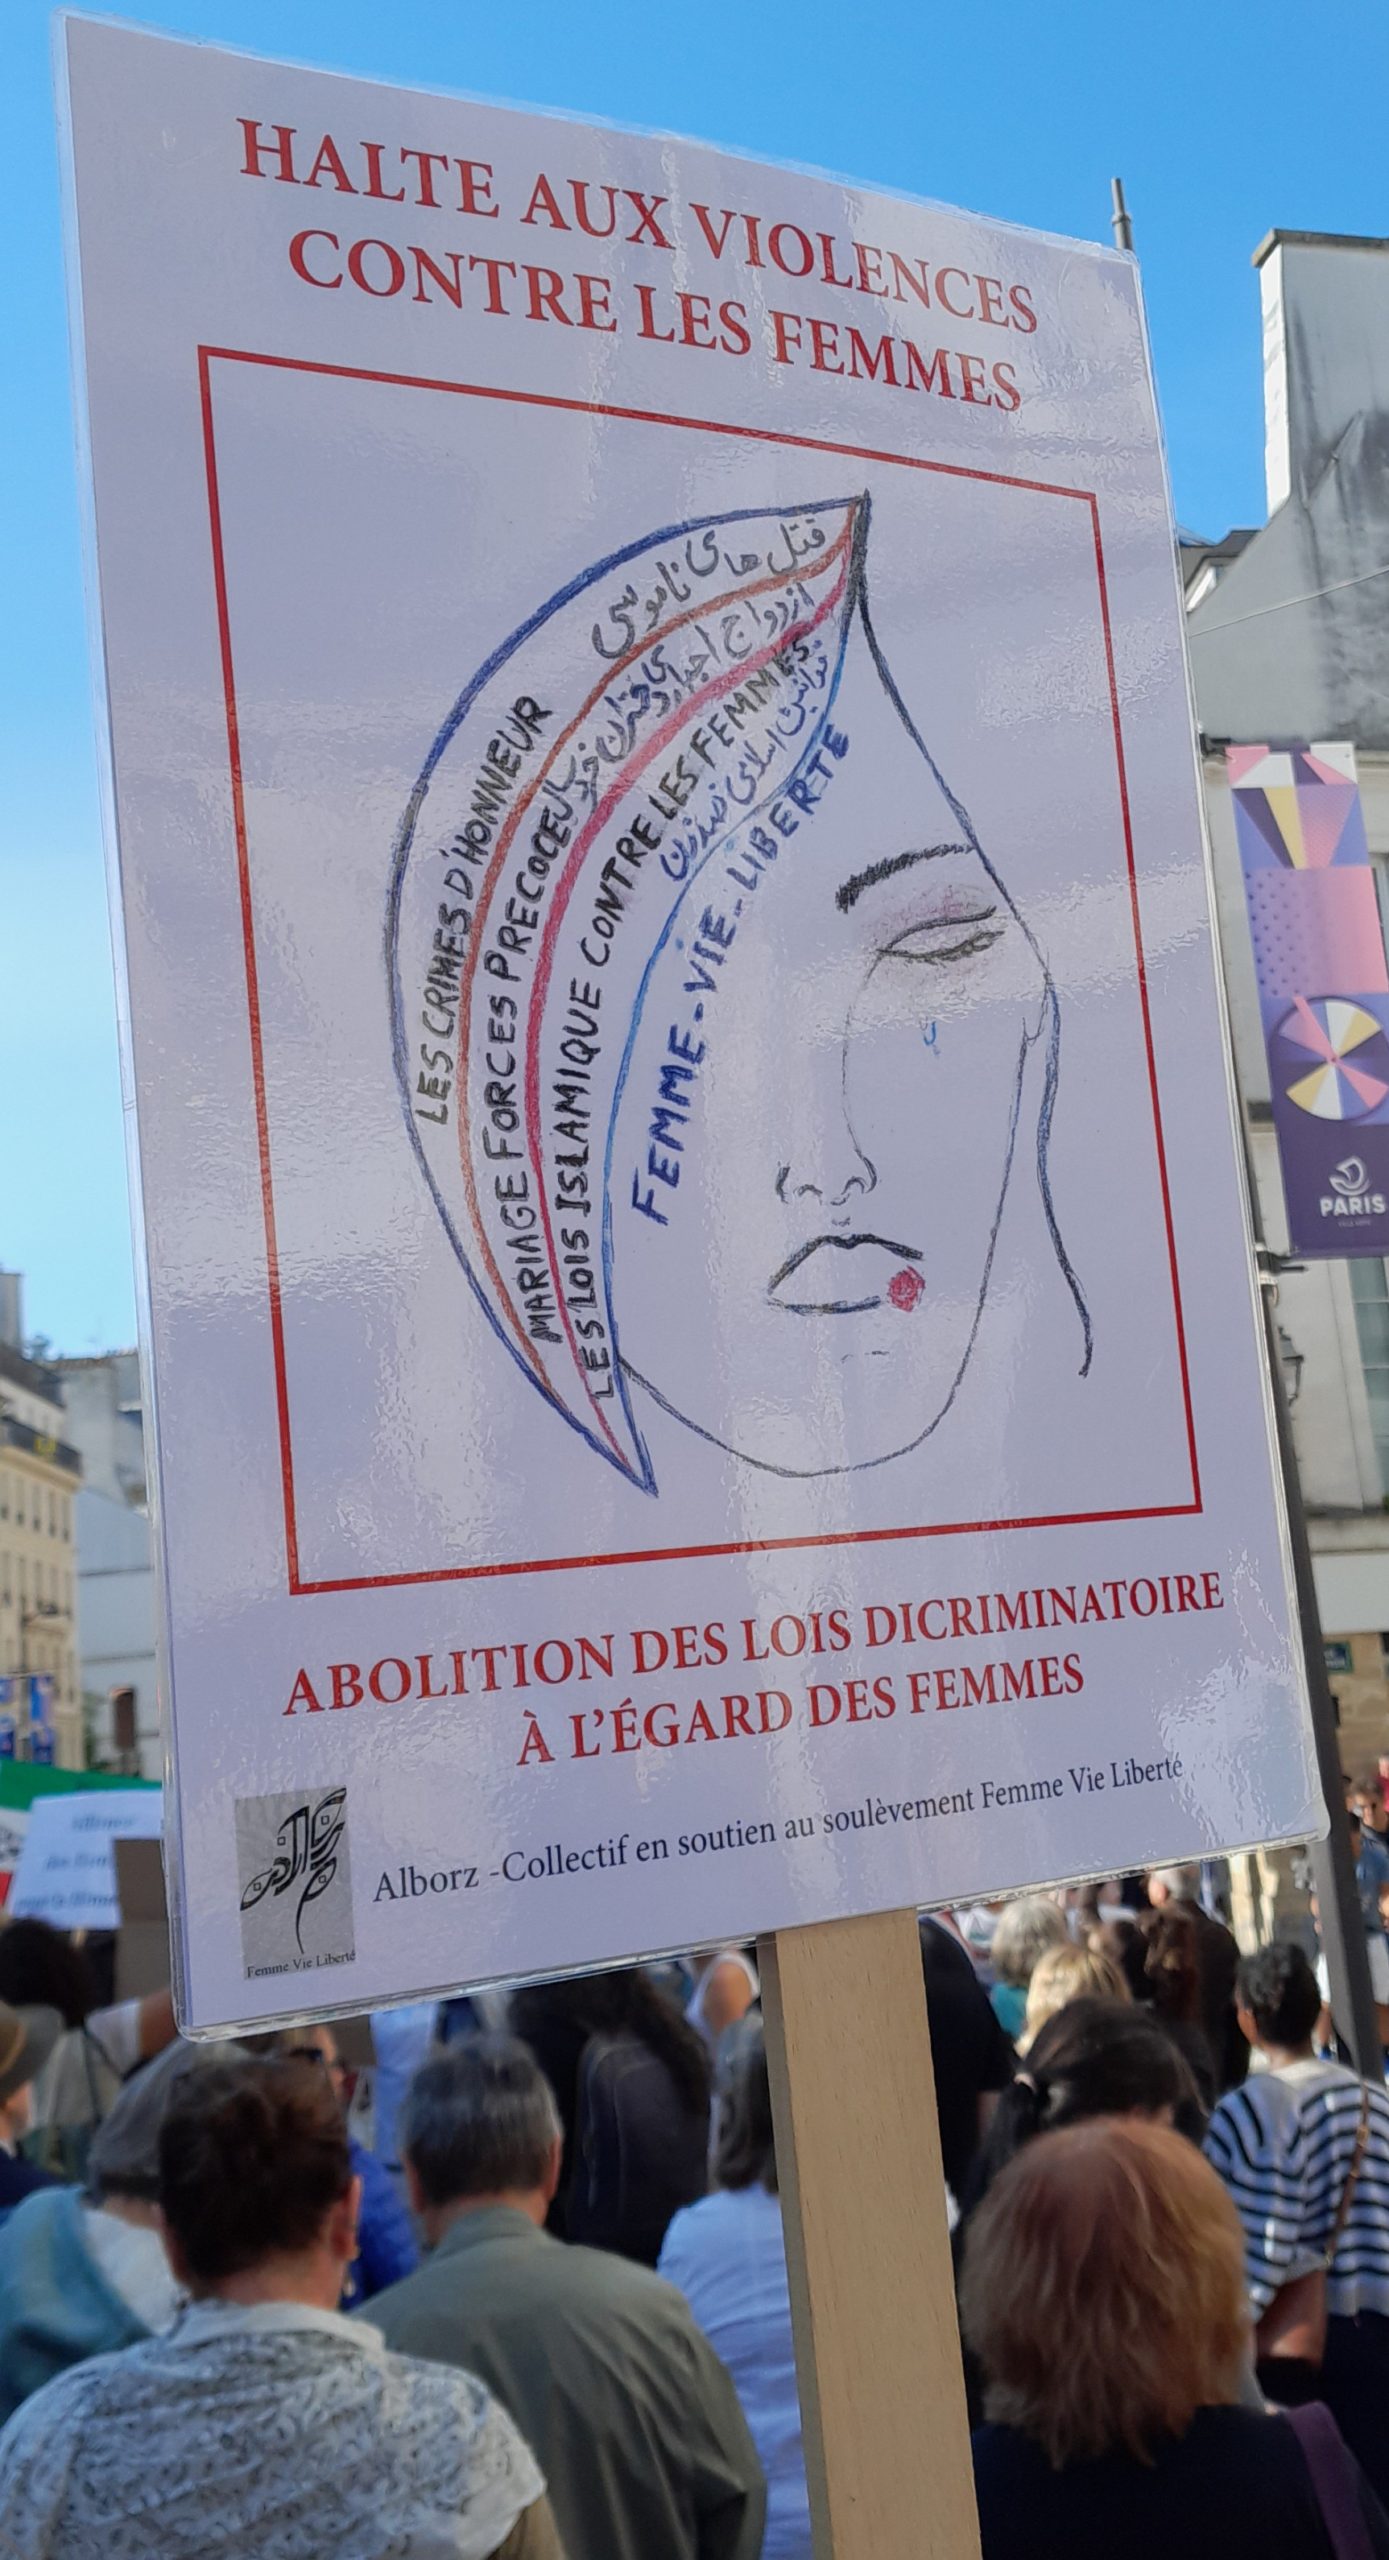 HALTE AUX VIOLENCES
CONTRE LES FEMMES
قتل های ناموسی
LES CRIMES D'HONNEUR
ازدواج اجباری دختران خردسال
MARIAGE FORCES PRECOCE
LES LOIS ISLAMIQUE CONTRE LES FEMMES
قوانین اسلامی ضد زن
FEMME-VIE-LIBERTE
ABOLITION DES LOIS DICRIMINATOIRE
À L'ÉGARD DES FEMMES
Alborz -Collectif en soutien au soulèvement Femme Vie Liberté
Femme Vie Liberté
PARIS